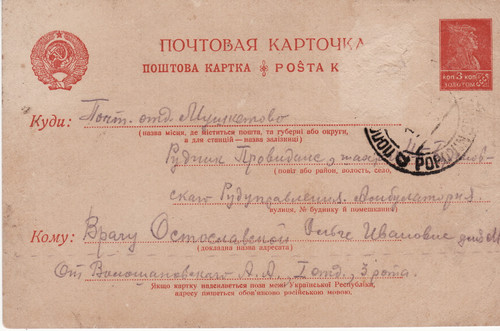 ПОЧТОВАЯ КАРТОЧКА
ПОШТОВА КАРТКА POŠTA K
КОП 3 КОП
ЗОЛОТОМ
Куди: Почт. отд. Мушкетово
(назва місця, де міститься пошта, та губерні або округи,
а для станцій — назва залізниці)
Рудник Провиданс,
(повіт або район, волость, село,
скаго Рудуправления. Амбулатория
вулиця, № будинку й помешкання)
Кому: Врачу Остославской Ольге Ивановне для
(докладна назва адресата)
От Волошановского А. А., I отд., 3 рота.
Якщо картку надсилається поза межі Української Республіки,
адресу пишеться обов'язково російською мовою.